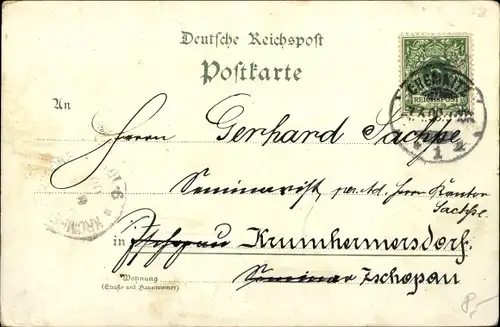 Deutsche Reichspost
Postkarte
REICHSPOST
CHEMNITZ
1
An
Herrn Gerhard Sachße
Seminarist, per Ad. Herrn Kantor
Sachße
in Zschopau Krumhermersdorf.
Wohnung
(Straße und Hausnummer)
Seminar Zschopau
8,-